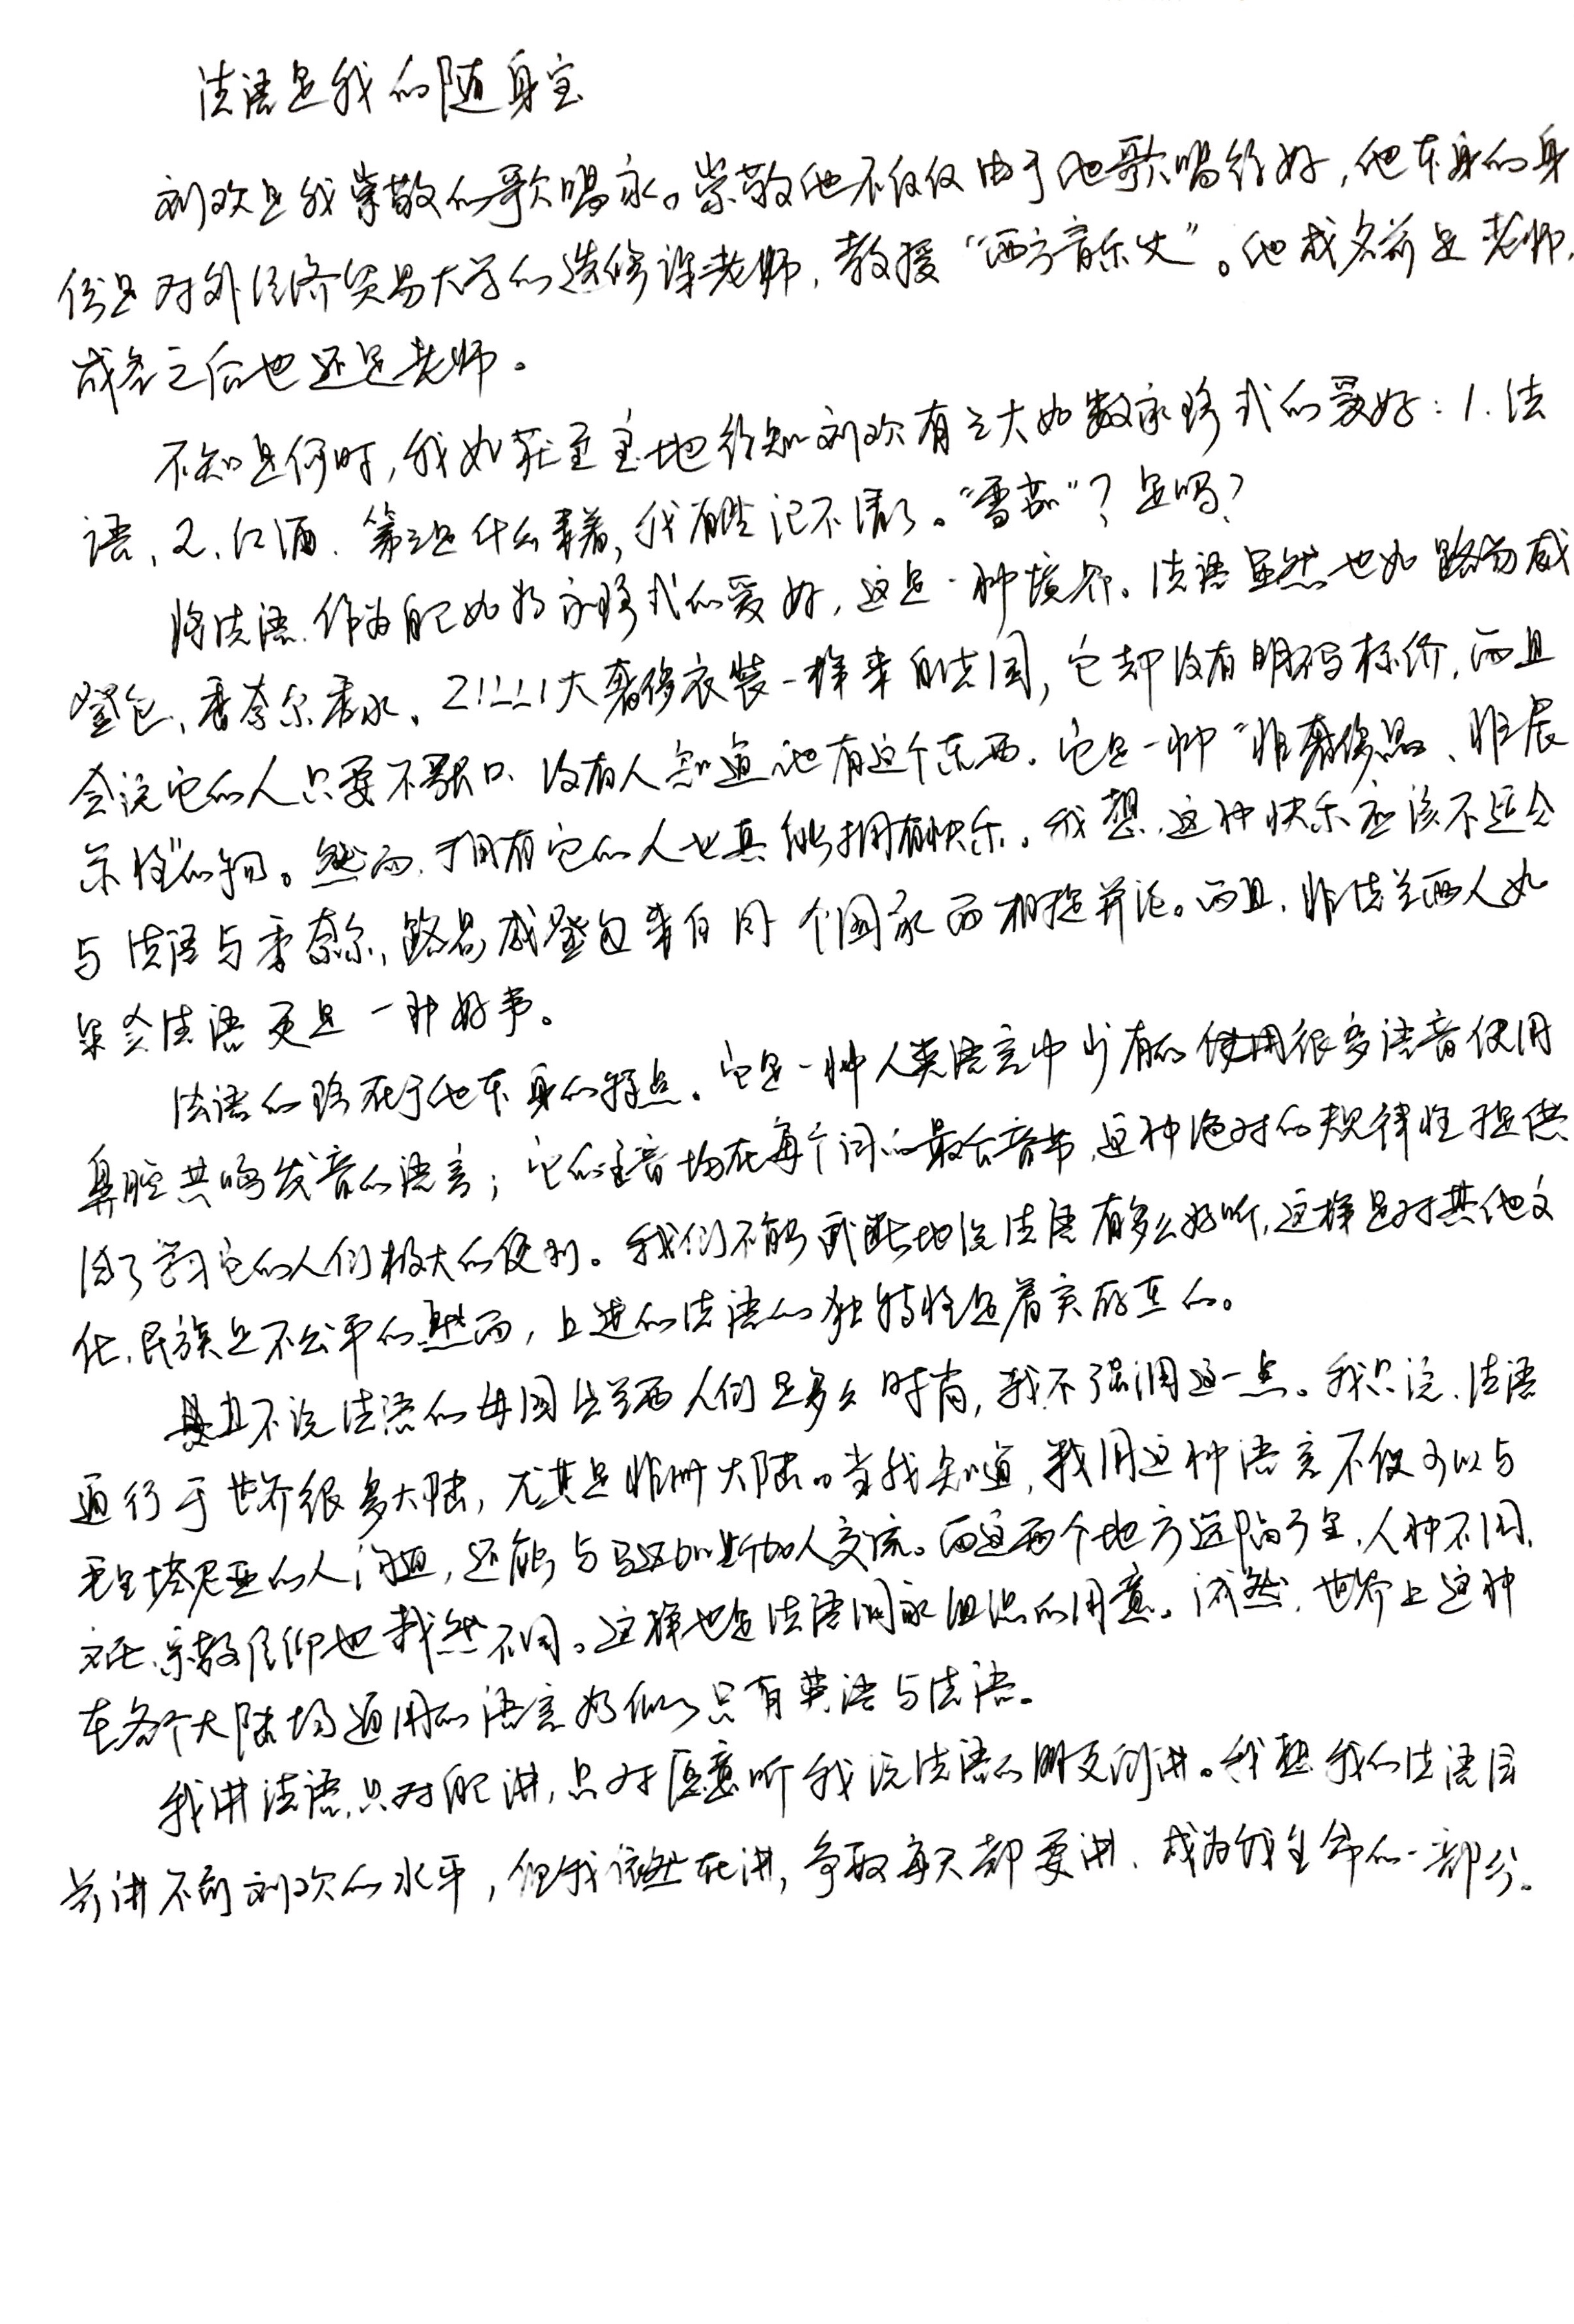 法语是我的随身宝
刘欢是我崇敬的歌唱家。崇敬他不仅仅由于他歌唱得好,他本身的身
份是对外经济贸易大学的选修课老师,教授“西方音乐史”。他成名前是老师,
成名之后也还是老师。
不知是何时,我如获至宝地得知刘欢有三大如数家珍式的爱好:1.法
语,2.红酒.第三是什么来着,我有些记不清了。“雪茄”?是吗?
将法语作为自己如数家珍式的爱好,这是一种境界。法语虽然也如路易威
登包、香奈尔香水、大奢侈衣装一样来自法国,它却没有明码标价,而且
会说它的人只要不张口没有人知道他有这个东西。它是一种“非奢侈品、非展
示性”的物。然而,拥有它的人也真能拥有快乐。我想,这种快乐应该不适合
与法语与香奈尔,路易威登包来自同个国家而相提并论。而且,非法兰西人如
果会法语更是一种好事。
法语的珍在于他本身的特点。它是一种人类语言中少有的使用很多语音使用
鼻腔共鸣发音的语言;它的重音均在每个词的最后音节,这种绝对的规律性提供
给了学习它的人们极大的便利。我们不能武断地说法语有多么好听,这样是对其他文
化、民族是不公平的然而,上述的法语的独特性是着实存在的。
且不说法语的母国法兰西人们是多么时尚,我不强调这一点。我只说,法语
通行于世界很多大陆,尤其是非洲大陆。当我知道,我用这种语言不仅可以与
毛里塔尼亚的人沟通,还能与马达加斯加人交流。而这两个地方远隔千里,人种不同,
文化、宗教信仰也截然不同。这样也是法语国家组织的用意。诚然,世界上这种
在各个大陆均通用的语言好似只有英语与法语。
我讲法语,只对自己讲,只对愿意听我说法语的朋友们讲。我想我的法语目
前讲不到刘欢的水平,但我依然在讲,争取每天都要讲,成为我生命的一部分。